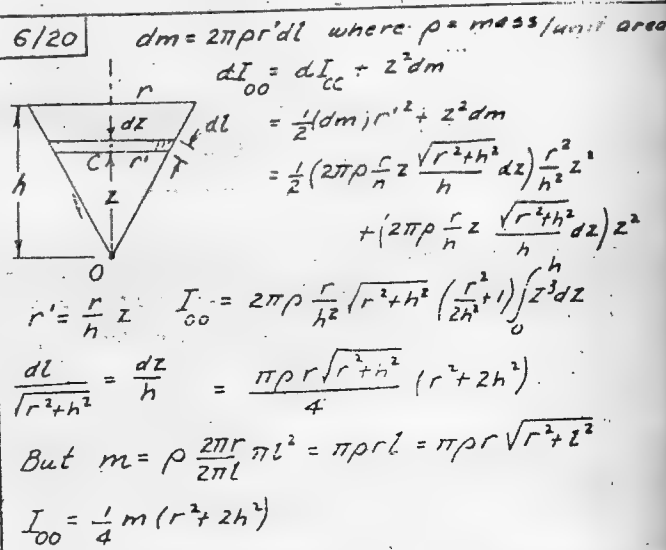 6/20
dm = 2πρr'dl where ρ = mass/unit area
dI_OO = dI_CC + z²dm
= ½(dm)r'² + z²dm
= ½(2πρ r/h z √(r²+h²)/h dz) r²/h² z²
+ (2πρ r/h z √(r²+h²)/h dz) z²
r
dz
dl
C
r'
h
z
O
r' = r/h z I_OO = 2πρ r/h² √(r²+h²) (r²/2h² + 1) ∫₀ʰ z³dz
dl/√(r²+h²) = dz/h = πρr√(r²+h²)/4 (r²+2h²)
But m = ρ 2πr/2πl πl² = πρrl = πρr √(r²+l²)
I_OO = ¼ m (r²+2h²)